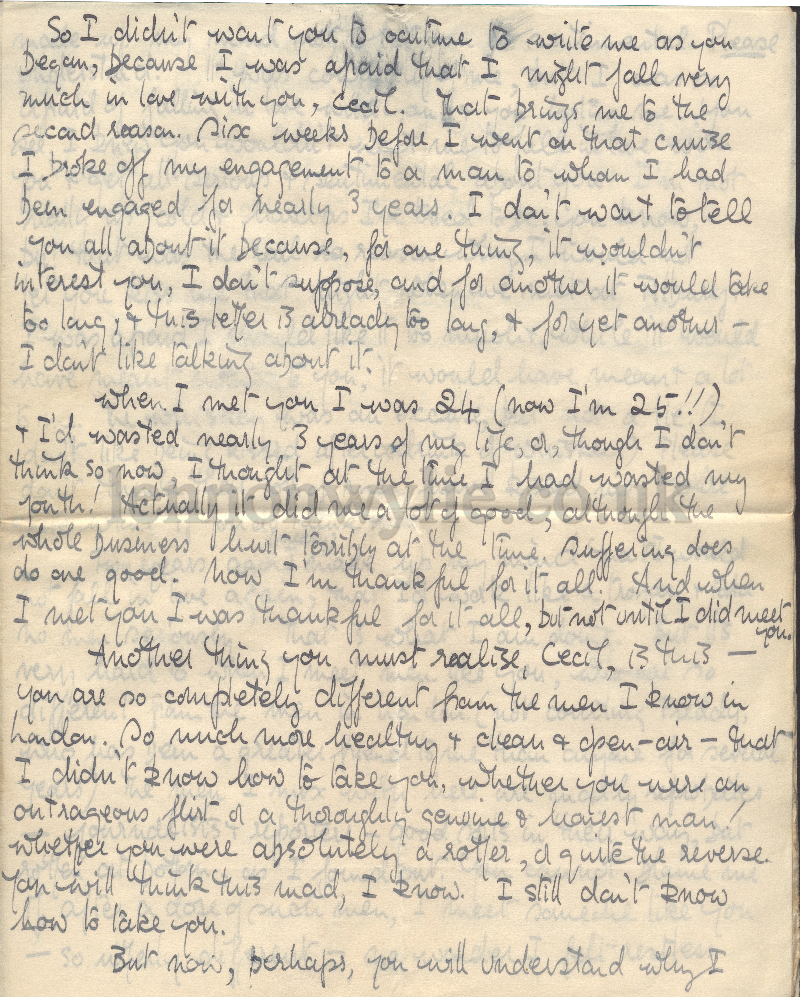 So I didn't want you to continue to write me as you
began, because I was afraid that I might fall very
much in love with you, Cecil. That brings me to the
second reason. Six weeks before I went on that cruise
I broke off my engagement to a man to whom I had
been engaged for nearly 3 years. I don't want to tell
you all about it because, for one thing, it wouldn't
interest you, I don't suppose, and for another it would take
too long, & this letter is already too long, & for yet another –
I don't like talking about it.
When I met you I was 24 (now I'm 25!!)
& I'd wasted nearly 3 years of my life, or, though I don't
think so now, I thought at the time I had wasted my
youth! Actually it did me a lot of good, although the
whole business hurt terribly at the time. Suffering does
do one good. Now I'm thankful for it all. And when
I met you I was thankful for it all, but not until I did meet
you.
Another thing you must realise, Cecil, is this —
you are so completely different from the men I know in
London. So much more healthy & clean & open-air – that
I didn't know how to take you, whether you were an
outrageous flirt or a thoroughly genuine & honest man!
Whether you were absolutely a rotter, or quite the reverse.
You will think this mad, I know. I still don't know
how to take you.
But now, perhaps, you will understand why I
lennonwylie.co.uk